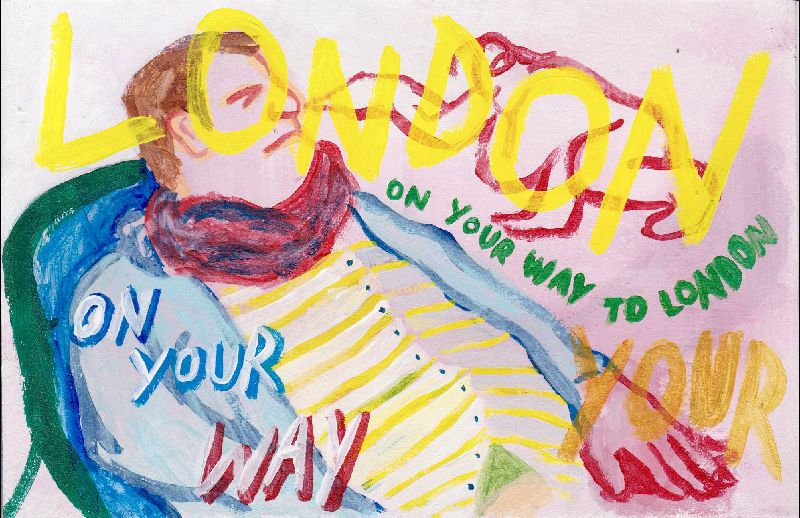 LONDON
ON YOUR WAY TO LONDON
ON
YOUR
WAY
YOUR